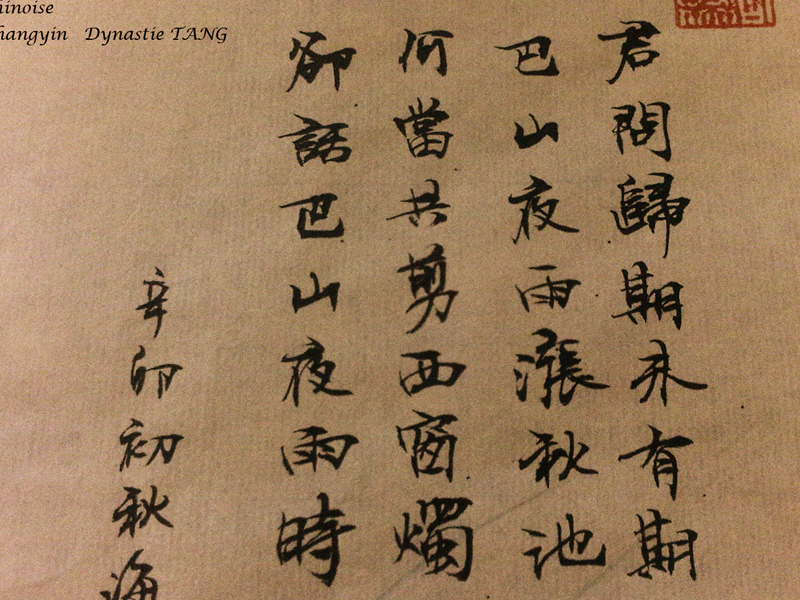 hinoise
hangyin Dynastie TANG
君問歸期未有期
巴山夜雨漲秋池
何當共剪西窗燭
卻話巴山夜雨時
辛卯初秋海